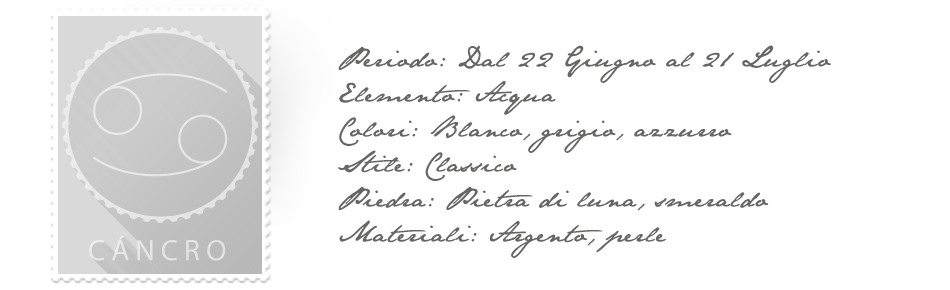 CÁNCRO
Periodo: Dal 22 Giugno al 21 Luglio
Elemento: Acqua
Colori: Blanco, grigio, azzurro
Stile: Classico
Piedra: Pietra di luna, smeraldo
Materiali: Argento, perle